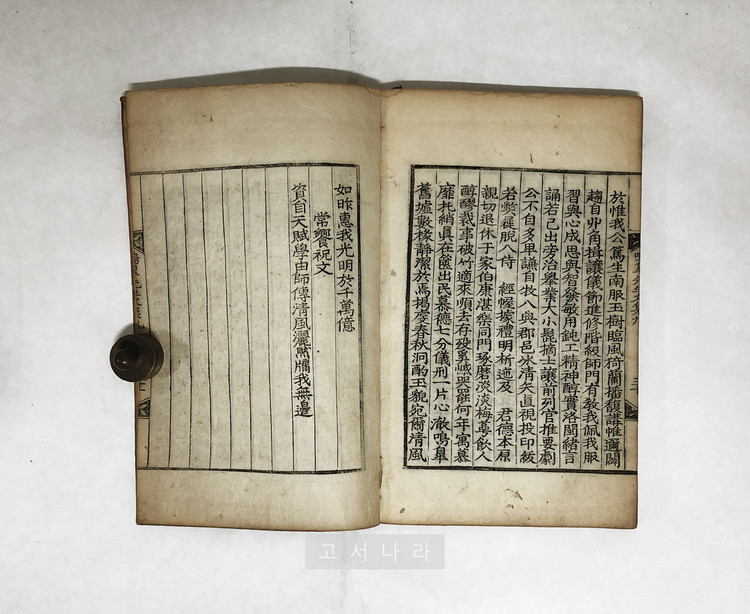 於惟我公篤生南服玉樹臨風猗蘭播馥講帷邇闢
趨自丱角揖讓儀飭進修階級師門有教我佩我服
習與心成思與睿發敏用鈍工精神醇實洛閩緒言
誦若己出旁治擧業大小毖摘上讓前列官推要劇
公不自多卑謙自牧入與郡邑氷淸矢直視投印紱
若 蹝脫入侍 經幄據禮明析迤及 君德本原
親切退休于家伯康湛樂同門琢磨淡淡梅尊飮人
醇醪裁事破竹適來順去存歿 年寓慕
靡托綃眞在篋出民慕德七分儀刑一片心 鳴皐
舊墟數椽靜潔於焉揭虔春秋泂酌玉貌宛爾淸風
如昨惠我光明於千萬億
常饗祝文
資自天賦學由師傳淸風灑然牖我無邊
고서나라